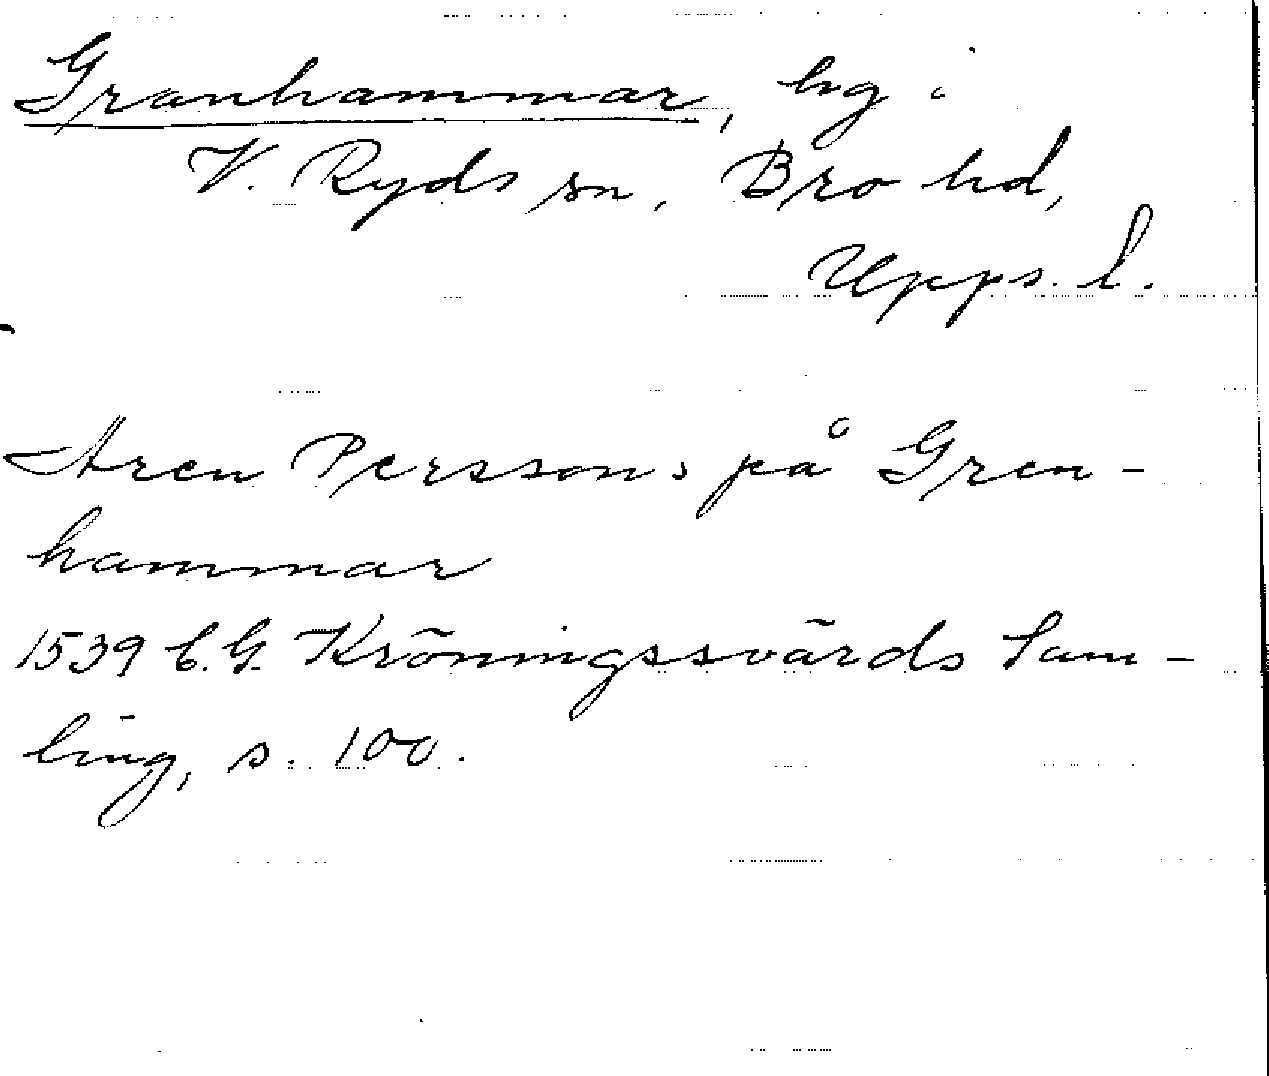 Granhammar, hg i
V. Ryds sn, Bro hd,
Upps. l.
Aren Persson, på Gren-
hammar
1539 C.G. Kröningssvärds Sam-
ling, s. 100.